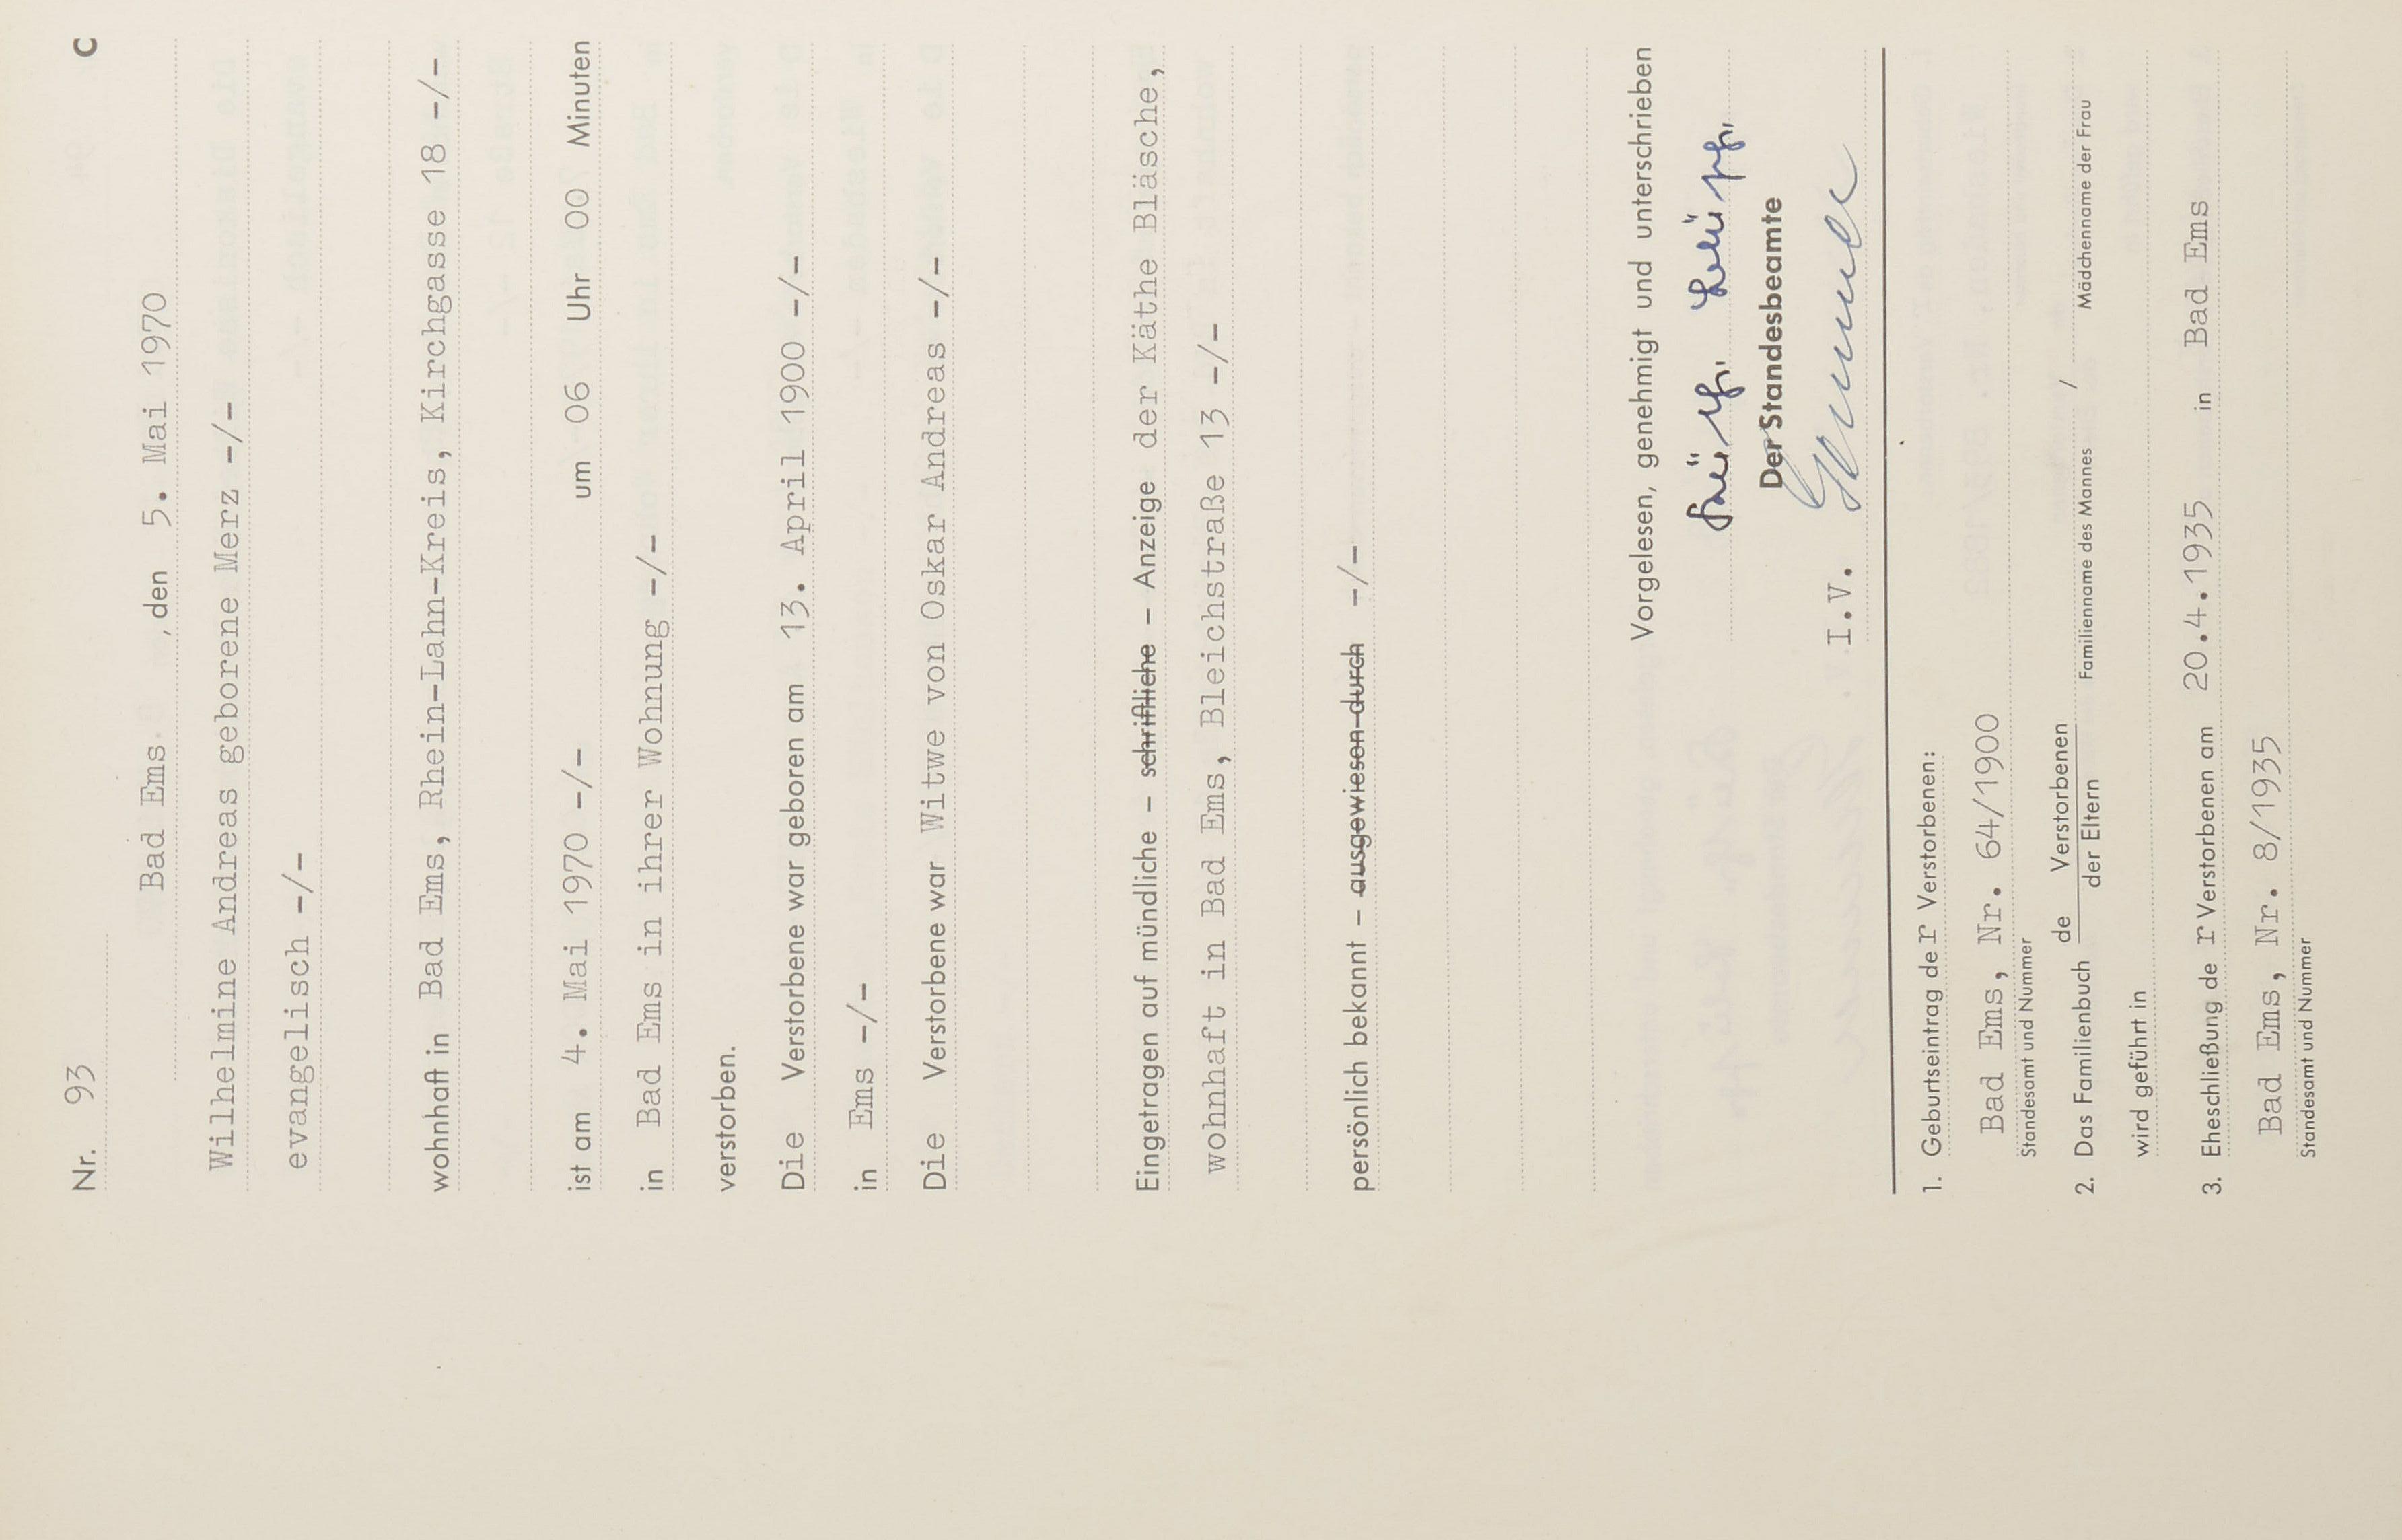 Nr. 93 C
Bad Ems , den 5. Mai 1970
Wilhelmine Andreas geborene Merz -/-
evangelisch -/-
wohnhaft in Bad Ems, Rhein-Lahn-Kreis, Kirchgasse 18 -/-
ist am 4. Mai 1970 -/- um 06 Uhr 00 Minuten
in Bad Ems in ihrer Wohnung -/-
verstorben.
Die Verstorbene war geboren am 13. April 1900 -/-
in Ems -/-
Die Verstorbene war Witwe von Oskar Andreas -/-
Eingetragen auf mündliche - schriftliche - Anzeige der Käthe Bläsche,
wohnhaft in Bad Ems, Bleichstraße 13 -/-
persönlich bekannt - ausgewiesen durch -/-
Vorgelesen, genehmigt und unterschrieben
Der Standesbeamte
I.V.
1. Geburtseintrag de r Verstorbenen:
Bad Ems, Nr. 64/1900
Standesamt und Nummer
2. Das Familienbuch de Verstorbenen / der Eltern /
Familienname des Mannes Mädchenname der Frau
wird geführt in
3. Eheschließung de r Verstorbenen am 20.4.1935 in Bad Ems
Bad Ems, Nr. 8/1935
Standesamt und Nummer